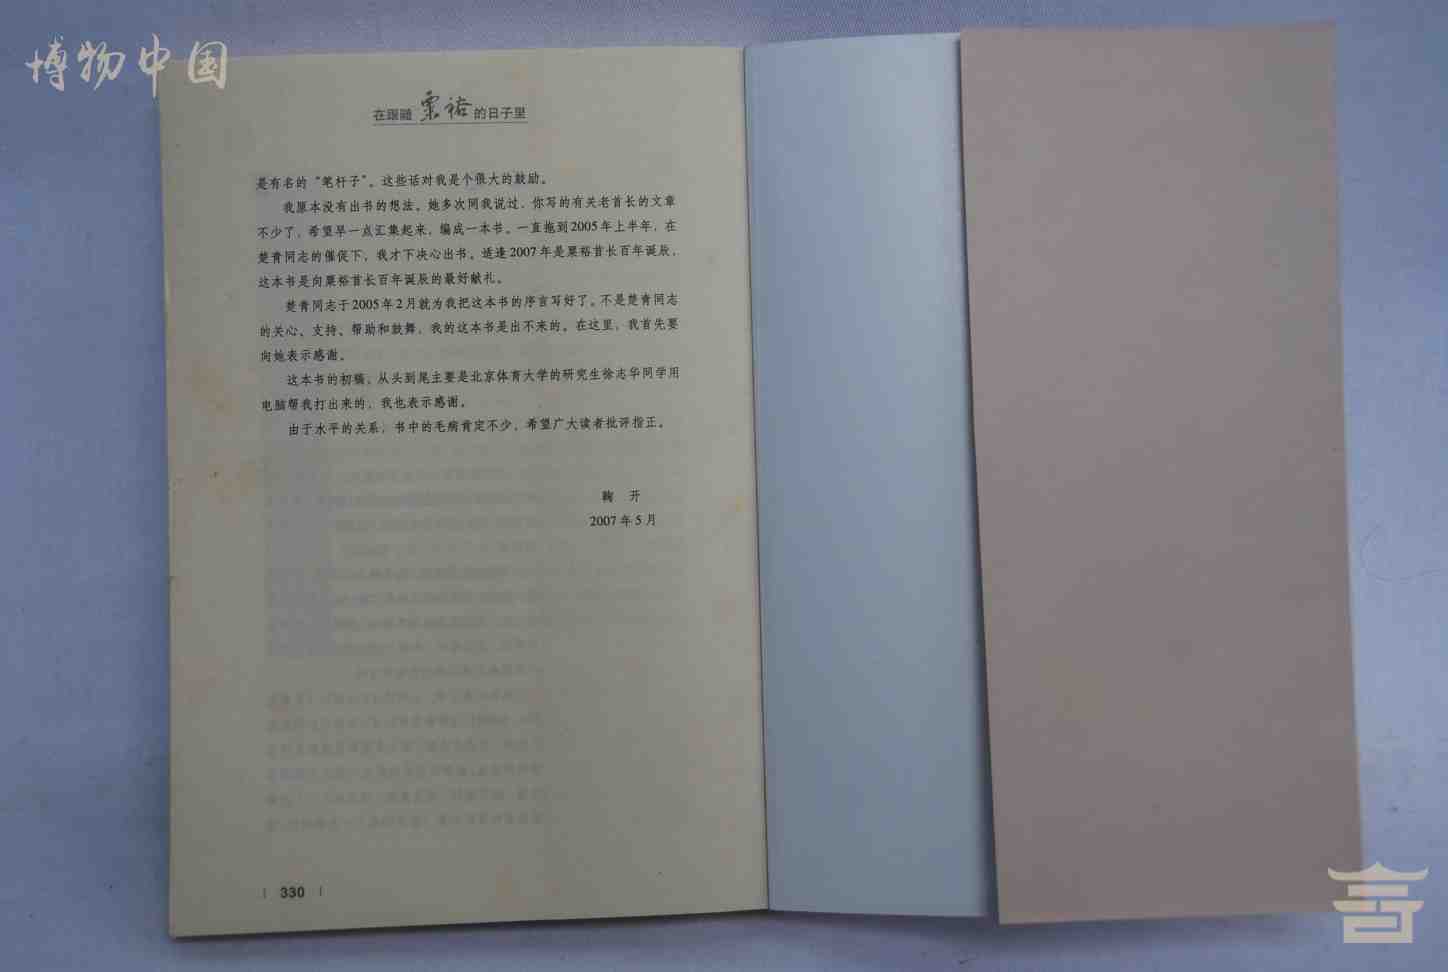 博物中国
在跟随粟裕的日子里
是有名的“笔杆子”。这些话对我是个很大的鼓励。
我原本没有出书的想法。她多次同我说过，你写的有关老首长的文章
不少了，希望早一点汇集起来，编成一本书。一直拖到2005年上半年，在
楚青同志的催促下，我才下决心出书。适逢2007年是粟裕首长百年诞辰，
这本书是向粟裕首长百年诞辰的最好献礼。
楚青同志于2005年2月就为我把这本书的序言写好了。不是楚青同志
的关心、支持、帮助和鼓舞，我的这本书是出不来的。在这里，我首先要
向她表示感谢。
这本书的初稿，从头到尾主要是北京体育大学的研究生徐志华同学用
电脑帮我打出来的，我也表示感谢。
由于水平的关系，书中的毛病肯定不少，希望广大读者批评指正。
鞠 开
2007年5月
330